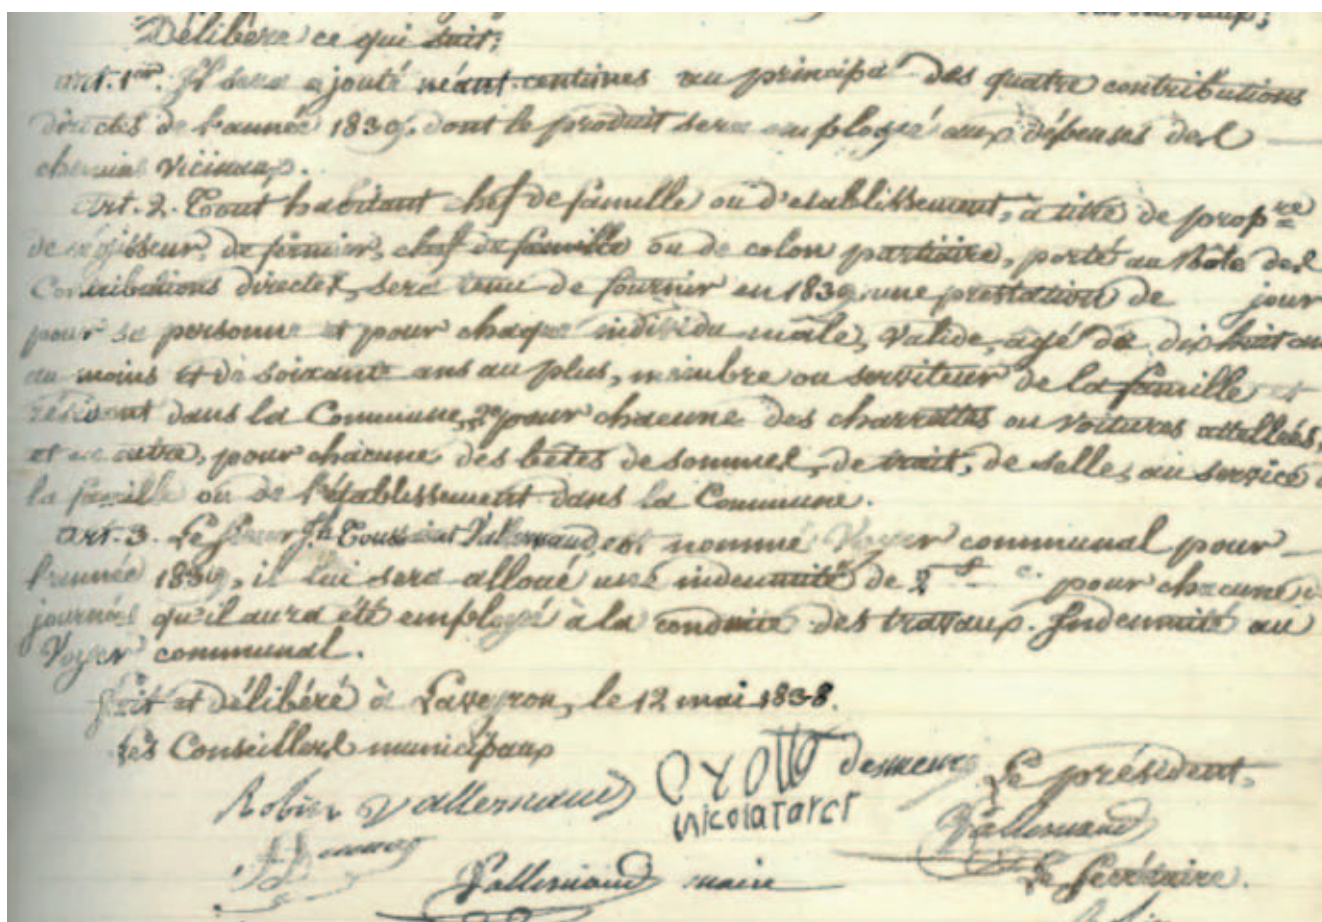 Délibère ce qui suit:
art. 1er. Il sera ajouté néant centimes au principal des quatre contributions
directes de l'année 1839, dont le produit sera employé aux dépenses des
chemins vicinaux.
Art. 2. Tout habitant chef de famille ou d'établissement, à titre de propre
de régisseur, de fermier, chef de famille ou de colon partiaire, porté au Rôle des
Contributions directes, sera tenu de fournir en 1839 une prestation de jour
pour sa personne et pour chaque individu mâle, valide, agé de dix huit ans
au moins et de soixante ans au plus, membre ou serviteur de la famille et
résidant dans la Commune, 2e pour chacune des charrettes ou voitures attellées,
et en outre, pour chacune des bêtes de sommes, de trait, de selle, au service d
la famille ou de l'établissement dans la Commune.
Art. 3. Le sieur Jh Toussaint Vallernaud, est nommé Voyer communal pour
l'année 1839, il lui sera alloué une indemnité de 2 f c. pour chacune d
journées qu'il aura été employé à la conduite des travaux. Indemnité au
Voyer communal.
fait et délibéré à Laveyron, le 12 mai 1838.
Les Conseillers municipaux
Robin Vallernaud Desmeure Le président,
nicolatarct Vallernaud
Vallernaud maire Le Secrétaire.